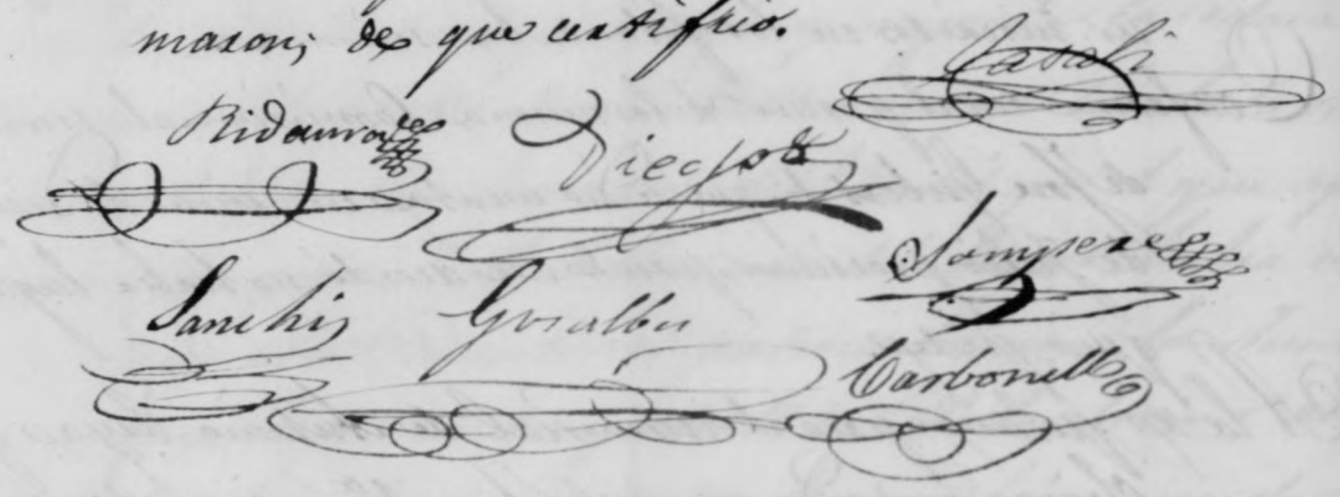 maron; de que certifico.
Ridaura
Diego
Sempere
Sanchis
Gosalbes
Carbonell